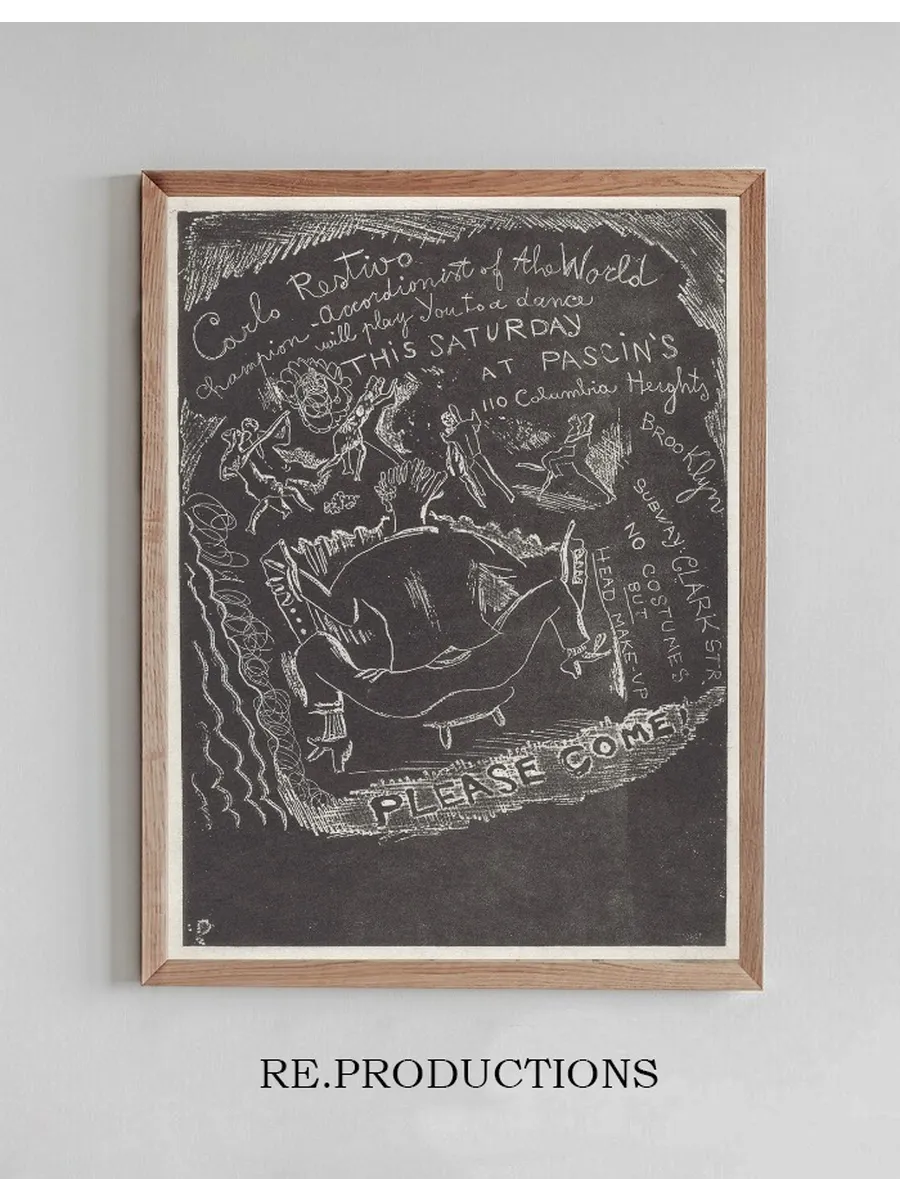 Carlo Restivo
champion - accordionist of the World
will play You to a dance
THIS SATURDAY
AT PASCIN'S
110 Columbia Heights
BROOKlyn
SUBWAY: CLARK STR.
NO COSTUMES
BUT
HEAD MAKE-UP
PLEASE COME!
RE.PRODUCTIONS